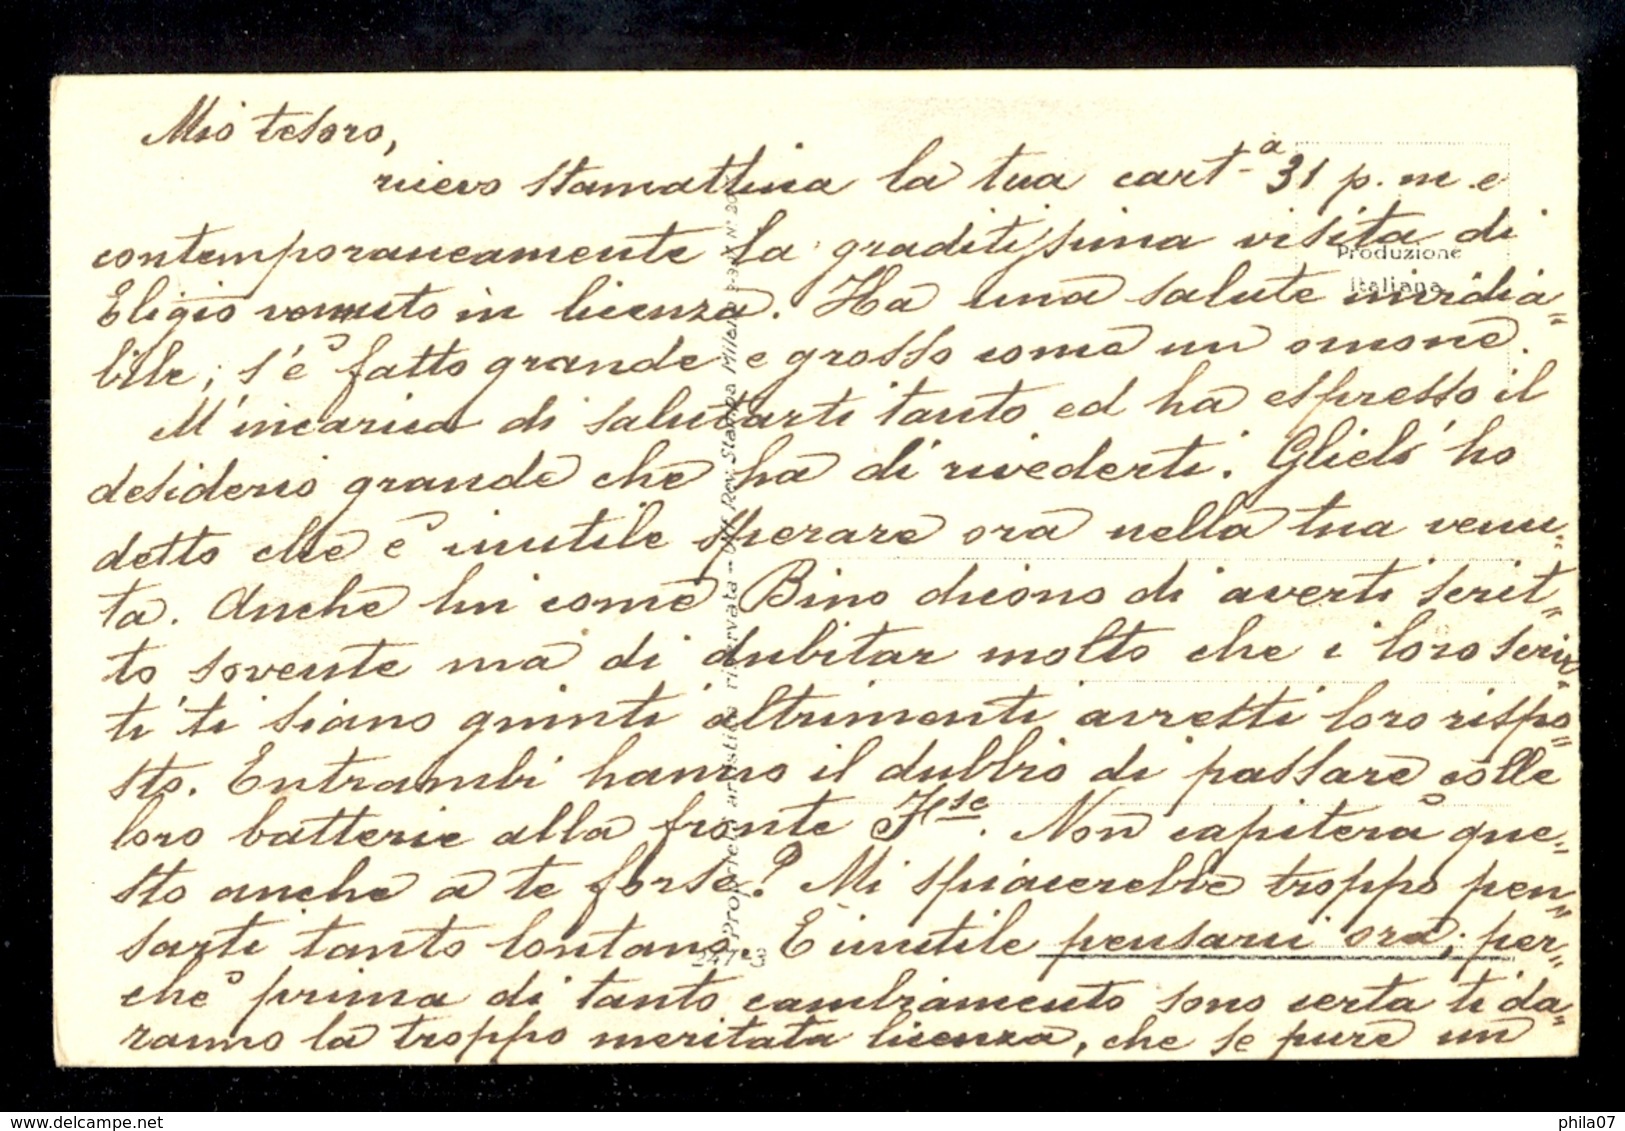 Mio tesoro,
ricevo stamattina la tua cart.a 31 p.m. e
contemporaneamente la graditissima visita di
Eligio venuto in licenza. Ha una salute invidia=
bile; s'è fatto grande e grosso come un omone.
M'incarica di salutarti tanto ed ha espresso il
desiderio grande che ha di rivederti. Glielo ho
detto che è inutile sperare ora nella tua venu=
ta. Anche lui come Bino dicono di averti scrit=
to sovente ma di dubitar molto che i loro scrit=
ti ti siano giunti altrimenti avresti loro rispo=
sto. Entrambi hanno il dubbio di passare colle
loro batterie alla fronte Fse. Non capiterà que=
sto anche a te forse? Mi spiacerebbe troppo pen=
sarti tanto lontano. È inutile pensarvi ora, per=
chè prima di tanto cambiamento sono certa ti da=
ranno la troppo meritata licenza, che se pure un
Produzione
Italiana
247-3
Proprietà artistica riservata - Uff. Rev. Stampa Milano
phila07